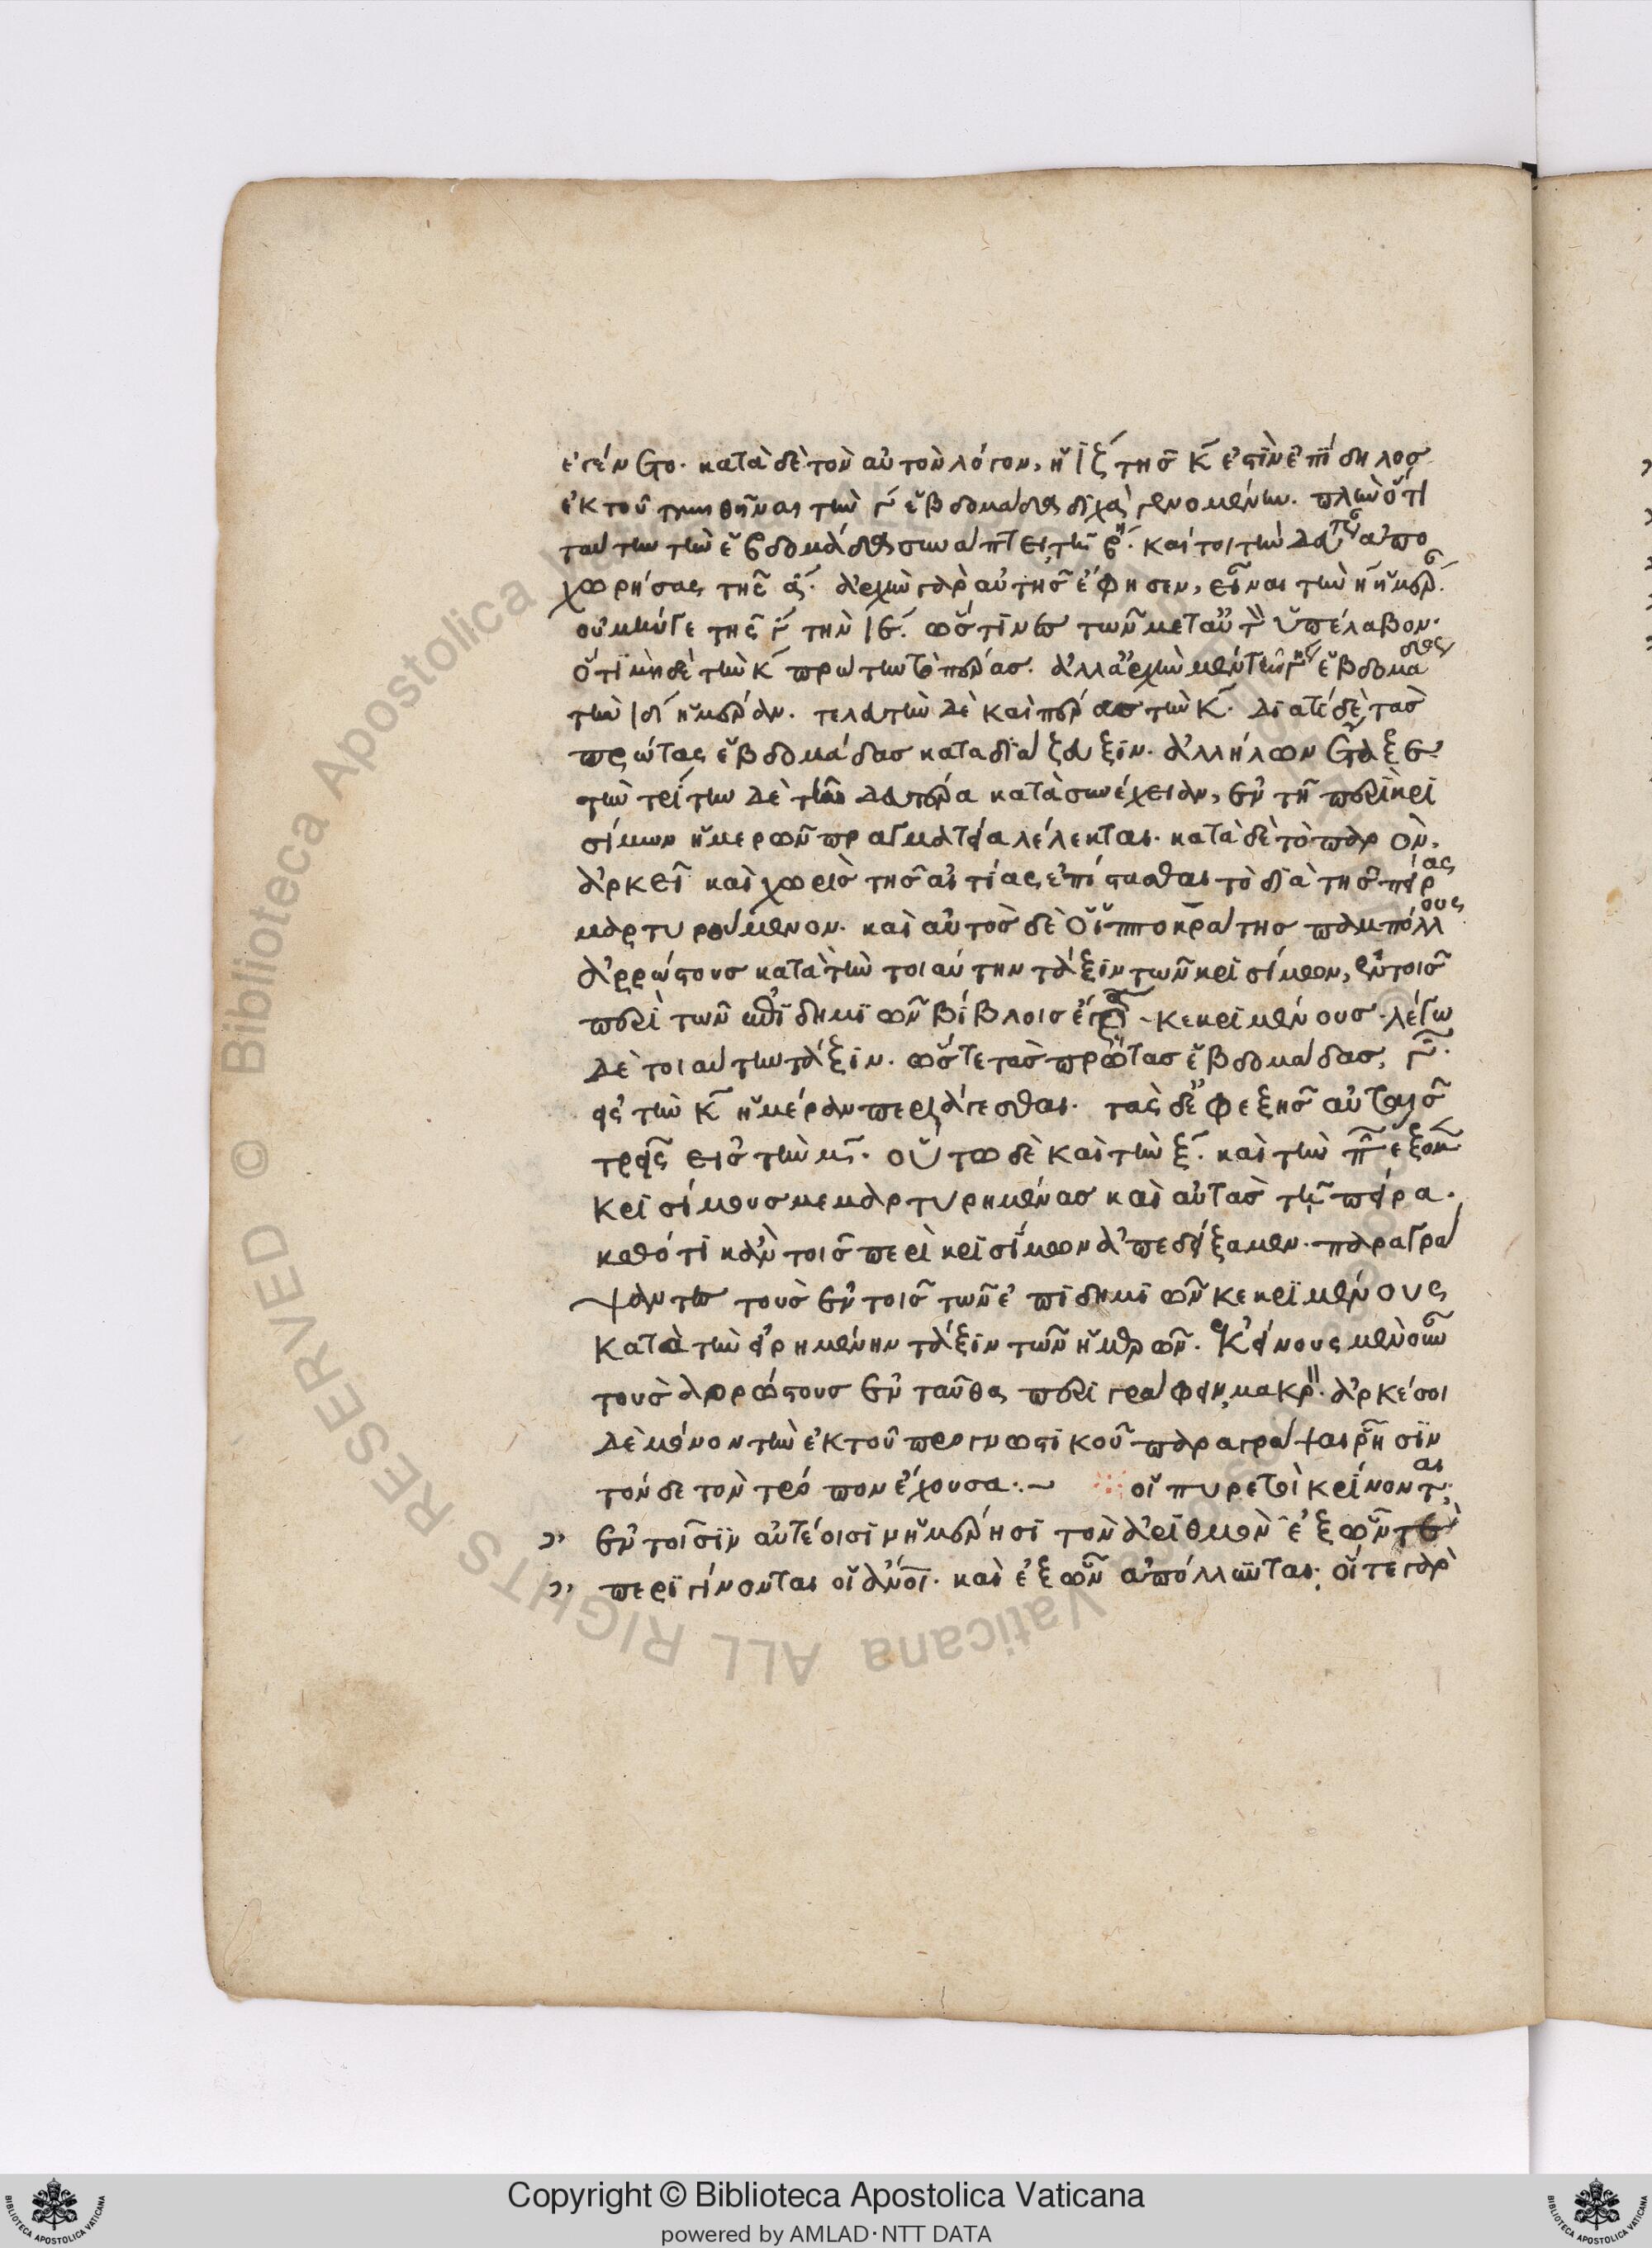 ἐγένετο. κατὰ δὲ τὸν αὐτὸν λόγον, ἡ ιζ΄ τῆς κ΄ ἐστὶν ἐπίδηλος
ἐκ τοῦ τμηθῆναι τὴν γ΄ ἑβδομάδα δίχα γενομένην. πλὴν ὅτι
ταύτην τὴν ἑβδομάδα συνάπτει τῇ β΄. καίτοι τὴν δευτέραν ἀπο
χωρήσας τῆς α΄. ἀρχὴν γὰρ αὐτῆς ἔφησεν, εἶναι τὴν η΄ ἡμέραν.
οὐ μήν γε τῆς γ΄ τὴν ιε΄. ὥς τινες τῶν μετ αὐτὸν ὑπέλαβον.
ὅτι μὴ δὲ τὴν κ΄ πρῶτον τὸ πέρας. ἀλλ ἀρχὴν μὲν τῆς γ΄ ἑβδομάδος
τὴν ιδ΄ ἡμέραν. τελευτὴν δὲ καὶ πέρας τὴν κ΄. διατί δὲ τὰς
πρώτας ἑβδομάδας κατα διάζευξιν. ἀλλήλων ἔταξε
τὴν τρίτην δὲ τῇ δευτέρα κατὰ συνέχειαν, ἐν τῇ περὶ κρι
σίμων ἡμερῶν πραγματεία λέλεκται. κατὰ δὲ τὸ παρὸν,
ἀρκεῖ καὶ χωρὶς τῆς αἰτίας ἐπίστασθαι τὸ διὰ τῆς πείρας
μαρτυρούμενον. καὶ αὐτὸς δὲ ὁ ἱπποκράτης παμπόλλους
ἀρρώστους κατὰ τὴν τοιαύτην τάξιν τῶν κρισίμων, ἐν τοῖς
περὶ τῶν ἐπιδημιῶν βίβλοις ἔγραψε κεκριμένους. λέγω
δὲ τοιαύτην τάξιν. ὥστε τὰς πρώτας ἑβδομάδας, γ΄.
εἰς τὴν κ΄ ἡμέραν περιάγεσθαι. τὰς δ ἐφεξῆς αὐταῖς
τρεῖς εἰς τὴν μ΄. οὕτω δὲ καὶ τὴν ξ΄. καὶ τὴν π΄ ἕξομεν
κρισίμους μεμαρτυρημένας καὶ αὐτὰς τῇ πείρα.
καθότι κἀν τοῖς περὶ κρισίμων ἀπεδείξαμεν. παραγρά
ψαντες τοὺς ἐν τοῖς τῶν ἐπιδημιῶν κεκριμένους
κατὰ τὴν εἰρημένην τάξιν τῶν ἡμερῶν. ἐκείνους μὲν οὖν
τοὺς ἀρρώστους ἐνταῦθα περιγράφειν, μακρὸν. ἀρκέσοι
δὲ μόνον τὴν ἐκ τοῦ προγνωστικοῦ παραγράψαι ῥῆσιν
τόνδε τὸν τρόπον ἔχουσα:~ οἱ πυρετοὶ κρίνονται
ἐν τοῖσιν αὐτέοισιν ἡμέρησι τὸν ἀριθμὸν ἐξ ὧν τε
περιγίνονται οἱ ἄνοι. καὶ ἐξ ὧν ἀπόλλυνται. οἵ τε γὰρ
Copyright © Biblioteca Apostolica Vaticana
powered by AMLAD·NTT DATA